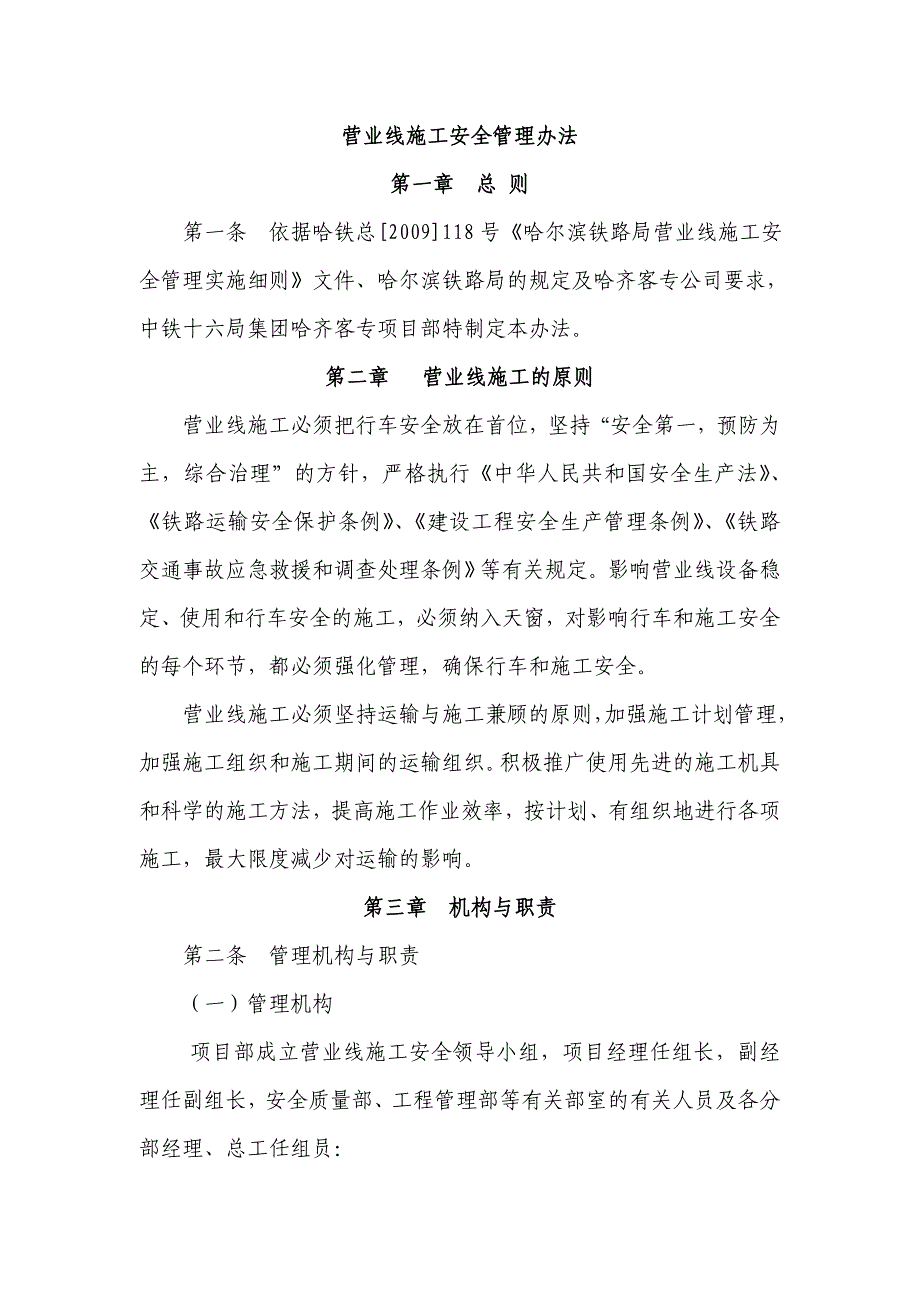 营业线施工安全管理办法
第一章　总 则
第一条　依据哈铁总[2009]118号《哈尔滨铁路局营业线施工安
全管理实施细则》文件、哈尔滨铁路局的规定及哈齐客专公司要求，
中铁十六局集团哈齐客专项目部特制定本办法。
第二章　 营业线施工的原则
营业线施工必须把行车安全放在首位，坚持“安全第一，预防为
主，综合治理”的方针，严格执行《中华人民共和国安全生产法》、
《铁路运输安全保护条例》、《建设工程安全生产管理条例》、《铁路
交通事故应急救援和调查处理条例》等有关规定。影响营业线设备稳
定、使用和行车安全的施工，必须纳入天窗，对影响行车和施工安全
的每个环节，都必须强化管理，确保行车和施工安全。
营业线施工必须坚持运输与施工兼顾的原则，加强施工计划管理，
加强施工组织和施工期间的运输组织。积极推广使用先进的施工机具
和科学的施工方法，提高施工作业效率，按计划、有组织地进行各项
施工，最大限度减少对运输的影响。
第三章　机构与职责
第二条　管理机构与职责
（一）管理机构
项目部成立营业线施工安全领导小组，项目经理任组长，副经
理任副组长，安全质量部、工程管理部等有关部室的有关人员及各分
部经理、总工任组员：